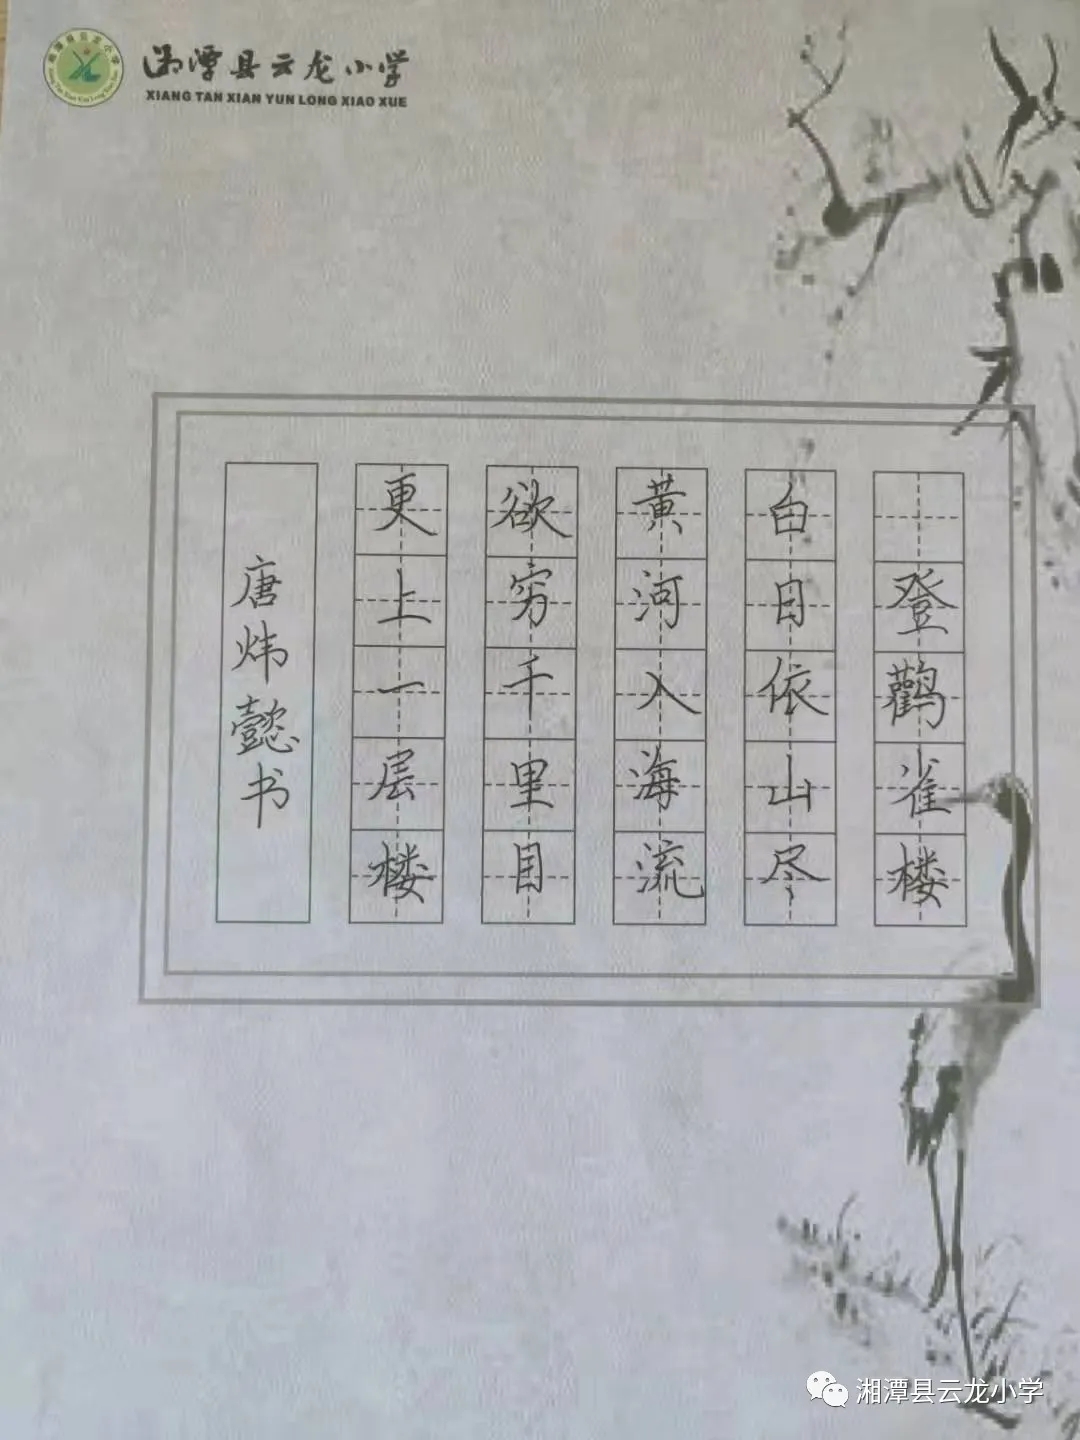 湘潭县云龙小学
XIANG TAN XIAN YUN LONG XIAO XUE
登鹳雀楼
白日依山尽
黄河入海流
欲穷千里目
更上一层楼
唐炜懿书
湘潭县云龙小学